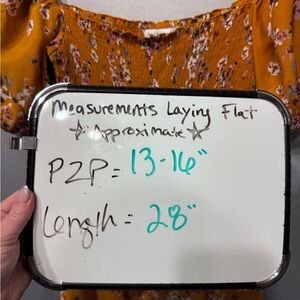 Measurements Laying Flat
☆ Approximate ☆
P2P = 13-16"
Length = 28"